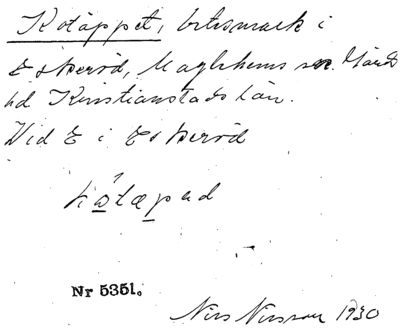 Kotäppet, betesmark i
Eskeröd, Maglehems sn. Gärds
hd Kristianstads län.
Vid E i Eskeröd
Nr 5351.
Nils Nilsson 1930